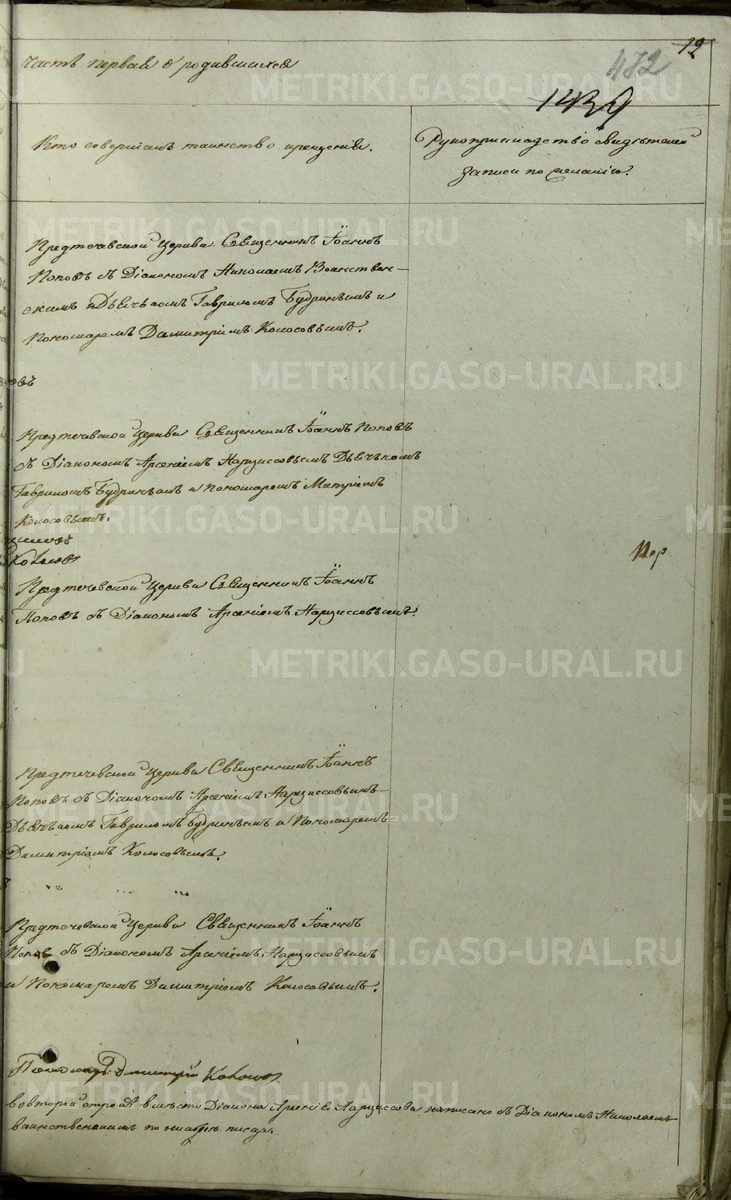 часть первая о родившихся
12
472
1439
Кто совершалъ таинство крещенія.
Рукоприкладство свидѣтелей
записи по желанію.
Предтечевской Церкви Священникъ Іоаннъ
Поповъ съ Діакономъ Николаемъ Воинствен-
скимъ и Дьячкомъ Гавріломъ Будринымъ и
Пономаремъ Дамитріемъ Колосовымъ.
Предтечевской Церкви Священникъ Іоаннъ Поповъ
съ Діакономъ Арсеніемъ Нарциссовымъ Дьячкомъ
Гавриломъ Будринымъ и Пономаремъ Митріемъ
Колосовымъ.
Предтечевской Церкви Священникъ Іоаннъ
Поповъ съ Діакономъ Арсеніемъ Нарциссовымъ.
Предтечевской Церкви Священникъ Іоаннъ
Поповъ съ Діакономъ Арсеніемъ Нарциссовымъ
Дьячкомъ Гавриломъ Будринымъ и Пономаремъ
Дамитріемъ Колосовымъ.
Предтечевской Церкви Священникъ Іоаннъ
Поповъ съ Діакономъ Арсеніемъ Нарциссовымъ
и Пономаремъ Дамитріемъ Колосовымъ.
Пономарь Дмитрій Колосовъ
во второй строкѣ вмѣсто Діакона Арсенія Нарциссова написано съ Діакономъ Николаемъ
METRIKI.GASO-URAL.RU